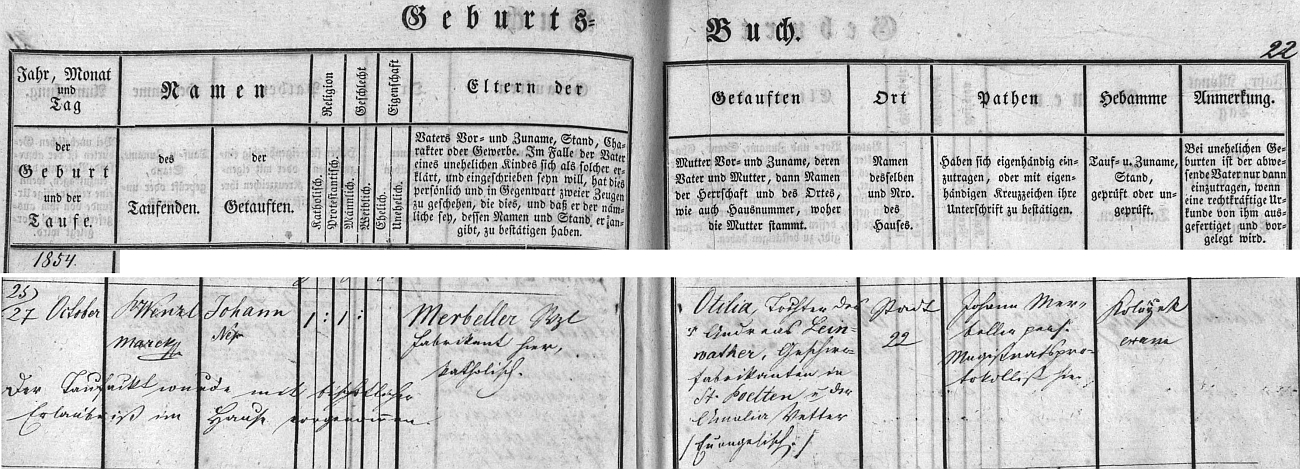 Geburts=
Buch.
22
Jahr, Monat
und
Tag
Namen
Religion
Geschlecht
Eigenschaft
Eltern der
Getauften
Ort
Pathen
Hebamme
Anmerkung.
der
Geburt
und der
Taufe.
des
Taufenden.
der
Getauften.
Katholisch.
Protestantisch.
Männlich.
Weiblich.
Ehelich.
Unehelich.
Vaters Vor- und Zuname, Stand, Cha-
rakter oder Gewerbe. Im Falle der Vater
eines unehelichen Kindes sich als solcher er-
klärt, und eingeschrieben seyn will, hat dies
persönlich und in Gegenwart zweier Zeugen
zu geschehen, die dies, und daß er der näm-
liche sey, dessen Namen und Stand er an-
gibt, zu bestätigen haben.
Mutter Vor- und Zuname, deren
Vater und Mutter, dann Namen
der Herrschaft und des Ortes,
wie auch Hausnummer, woher
die Mutter stammt.
Namen
desselben
und Nro.
des
Hauses.
Haben sich eigenhändig ein-
zutragen, oder mit eigen-
händigen Kreuzzeichen ihre
Unterschrift zu bestätigen.
Tauf- u. Zuname,
Stand,
geprüft oder un-
geprüft.
Bei unehelichen Ge-
burten ist der abwe-
sende Vater nur dann
einzutragen, wenn
eine rechtkräftige Ur-
kunde von ihm aus-
gefertiget und vor-
gelegt wird.
1854.
25
27 October
Wenzl
Marek
Johann
Nep
1 : 1 :
Merbeller
Fabrikant hier,
katholisch.
Der Taufackt wurde mit bischöflicher
Erlaubniß im Hause vorgenommen.
Otilia, Tochter des
Andreas Lein-
wather, Geschirr-
fabrikanten in
St. Poelten u der
Amalia Vetter
/ Evangelisch. /
Stadt
22
Johann Mer-
beller
Magistratspro-
tokollist hier